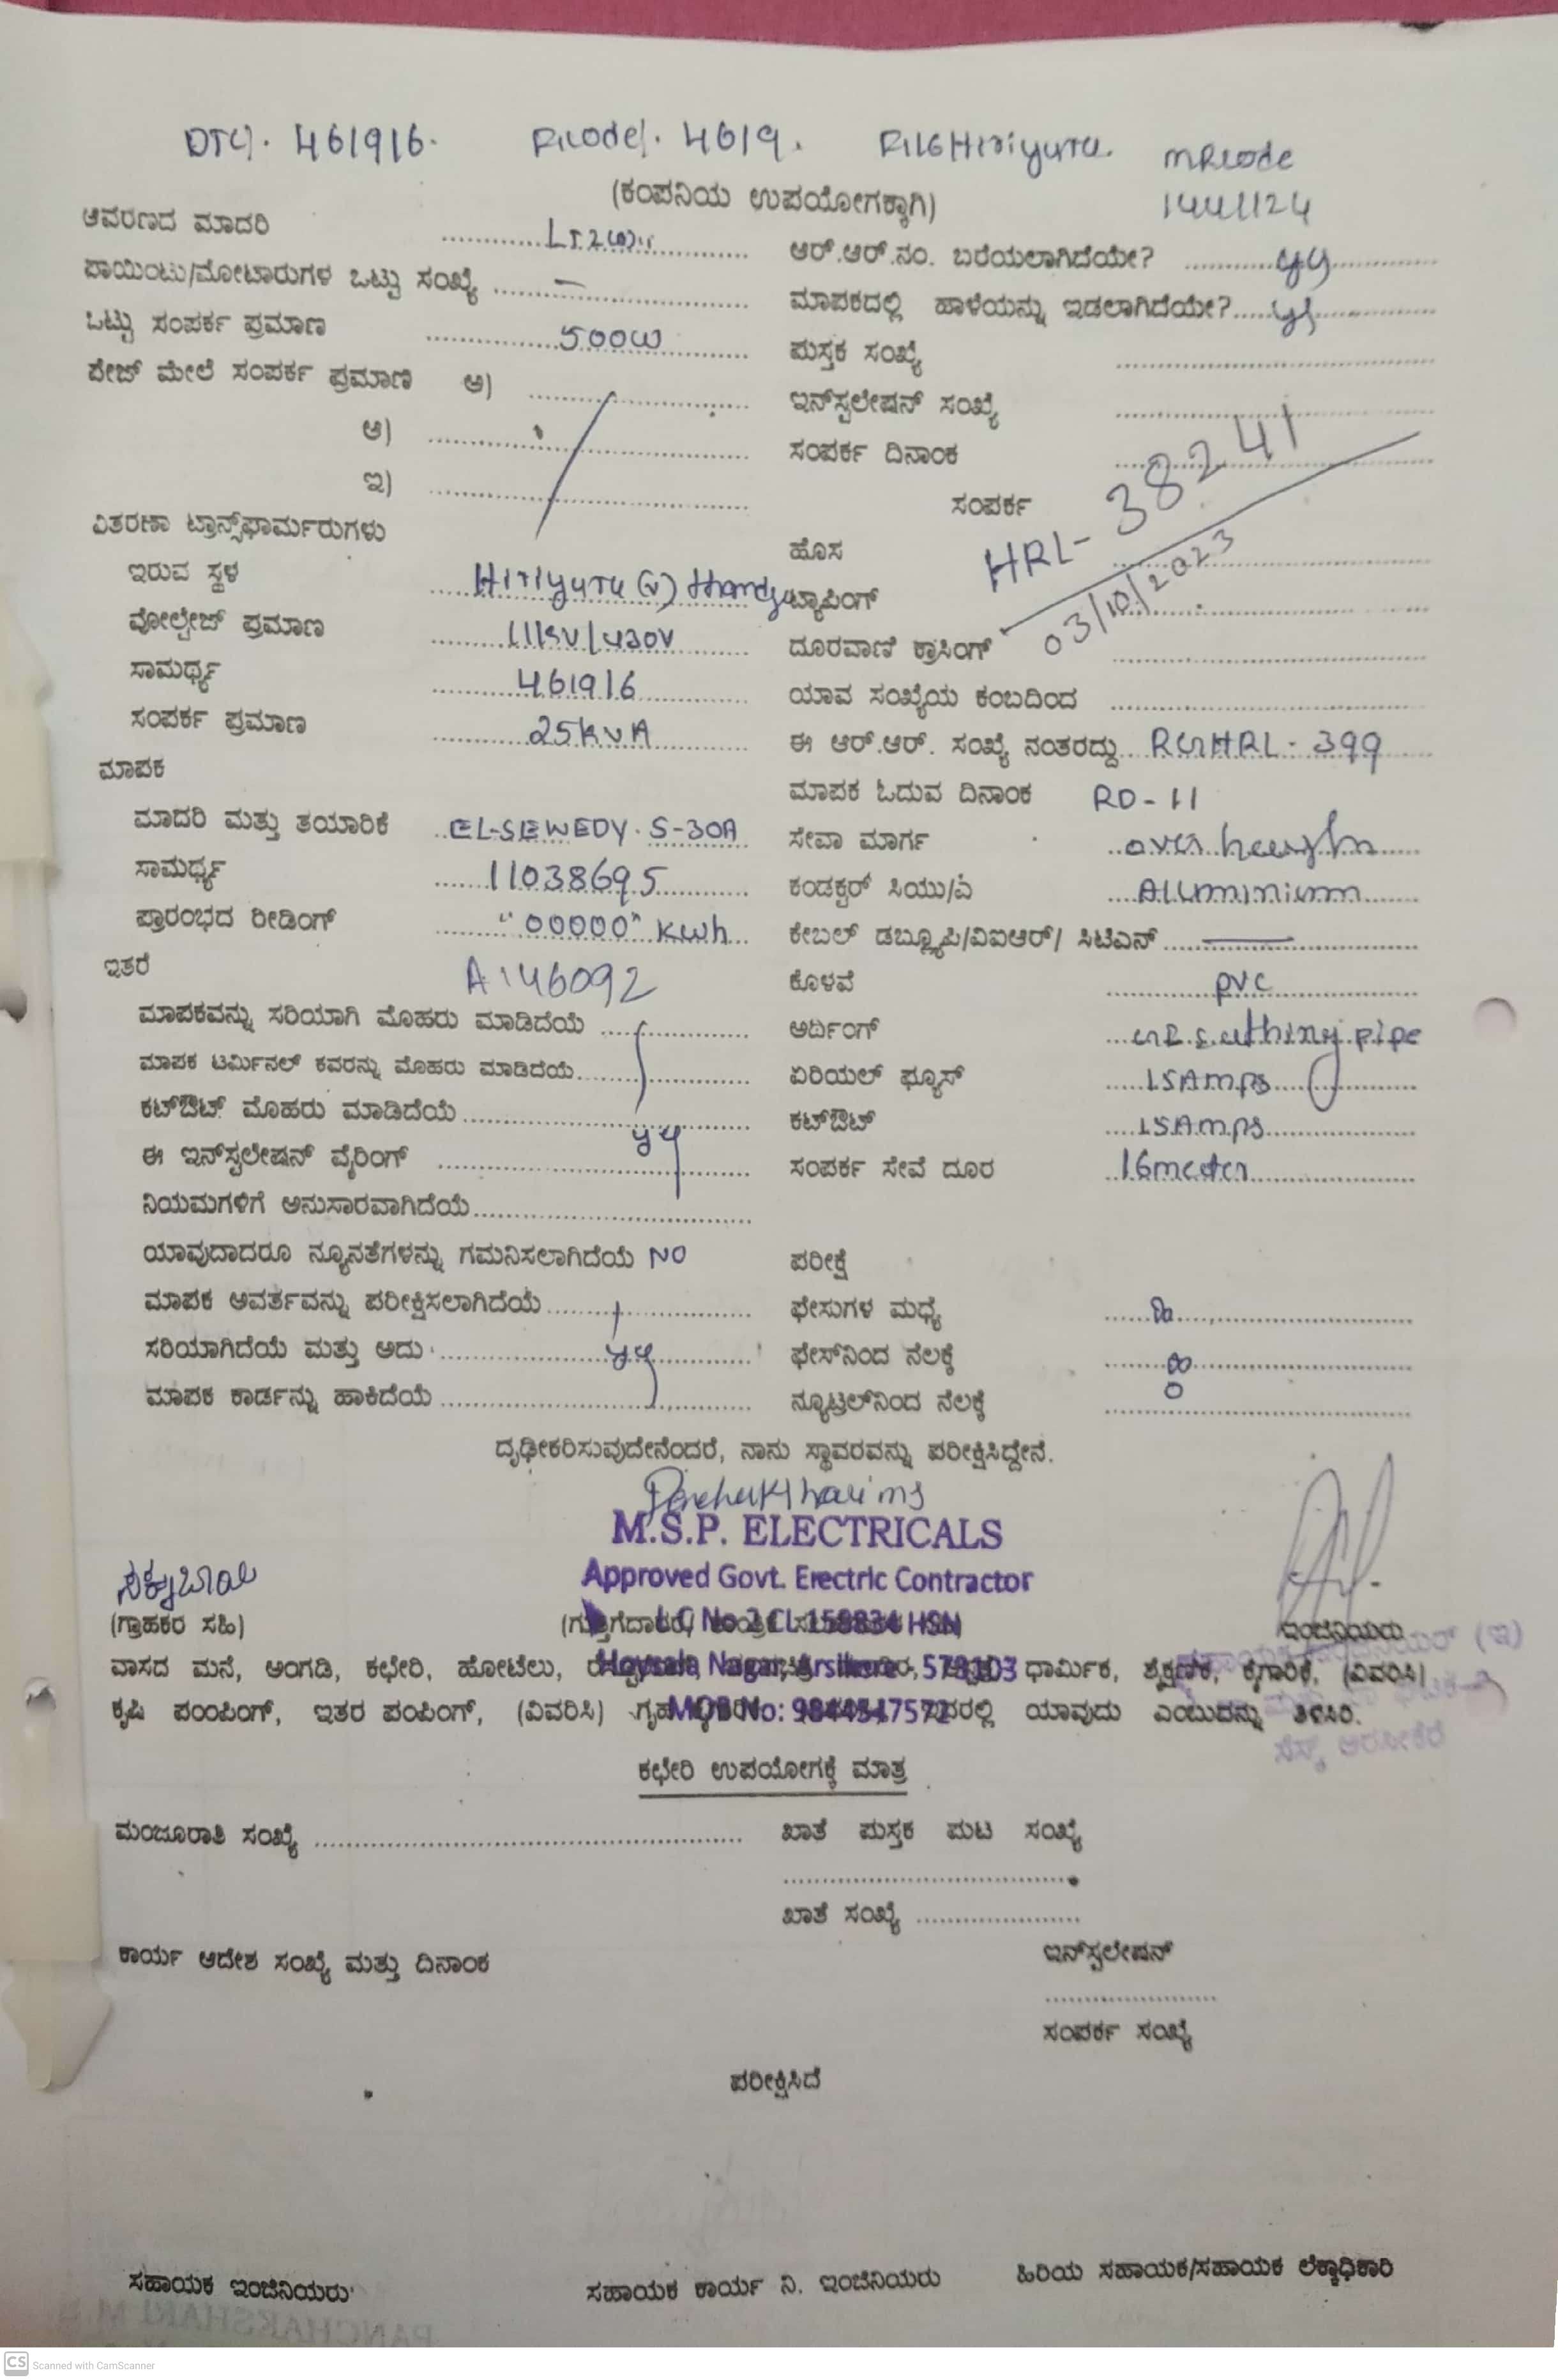 461916. 4619. Hiriyura.
(ಕಂಪನಿಯ ಉಪಯೋಗಕ್ಕಾಗಿ)
ಆವರಣದ ಮಾದರಿ
ಆರ್.ಆರ್.ನಂ. ಬರೆಯಲಾಗಿದೆಯೇ?
ಪಾಯಿಂಟು/ಮೋಟಾರುಗಳ ಒಟ್ಟು ಸಂಖ್ಯೆ –
ಮಾಪಕದಲ್ಲಿ ಹಾಳೆಯನ್ನು ಇಡಲಾಗಿದೆಯೇ?
ಒಟ್ಟು ಸಂಪರ್ಕ ಪ್ರಮಾಣ 500W
ಪುಸ್ತಕ ಸಂಖ್ಯೆ
ಪೇಜ್ ಮೇಲೆ ಸಂಪರ್ಕ ಪ್ರಮಾಣ ಅ)
ಇನ್‌ಸ್ಟಲೇಷನ್ ಸಂಖ್ಯೆ
ಆ)
ಸಂಪರ್ಕ ದಿನಾಂಕ
ಇ)
ಸಂಪರ್ಕ
HRL- 38241
03/10/2023
ವಿತರಣಾ ಟ್ರಾನ್ಸ್‌ಫಾರ್ಮರುಗಳು
ಹೊಸ
ಇರುವ ಸ್ಥಳ Hiriyura (v)
ಟ್ಯಾಪಿಂಗ್
ವೋಲ್ಟೇಜ್ ಪ್ರಮಾಣ
ದೂರವಾಣಿ ಕ್ರಾಸಿಂಗ್
ಸಾಮರ್ಥ್ಯ 461916
ಯಾವ ಸಂಖ್ಯೆಯ ಕಂಬದಿಂದ
ಸಂಪರ್ಕ ಪ್ರಮಾಣ 25KVA
ಈ ಆರ್.ಆರ್. ಸಂಖ್ಯೆ ನಂತರದ್ದು HRL - 399
ಮಾಪಕ
ಮಾಪಕ ಓದುವ ದಿನಾಂಕ RD - 11
ಮಾದರಿ ಮತ್ತು ತಯಾರಿಕೆ EL-SEWEDY. 5-30A
ಸೇವಾ ಮಾರ್ಗ
ಸಾಮರ್ಥ್ಯ 11038695
ಕಂಡಕ್ಟರ್ ಸಿಯು/ಎ Alluminium
ಪ್ರಾರಂಭದ ರೀಡಿಂಗ್ "00000" Kwh
ಕೇಬಲ್ ಡಬ್ಲ್ಯೂಪಿ/ವಿಐಆರ್/ ಸಿಟಿಎನ್
ಇತರೆ A146092
ಕೊಳವೆ PVC
ಮಾಪಕವನ್ನು ಸರಿಯಾಗಿ ಮೊಹರು ಮಾಡಿದೆಯೆ
ಅರ್ದಿಂಗ್ pipe
ಮಾಪಕ ಟರ್ಮಿನಲ್ ಕವರನ್ನು ಮೊಹರು ಮಾಡಿದೆಯೆ
ಏರಿಯಲ್ ಫ್ಯೂಸ್ 15Amps
ಕಟ್‌ಔಟ್ ಮೊಹರು ಮಾಡಿದೆಯೆ
ಕಟ್‌ಔಟ್ 15Amps
ಈ ಇನ್‌ಸ್ಟಲೇಷನ್ ವೈರಿಂಗ್
ಸಂಪರ್ಕ ಸೇವೆ ದೂರ 16meter
ನಿಯಮಗಳಿಗೆ ಅನುಸಾರವಾಗಿದೆಯೆ
ಯಾವುದಾದರೂ ನ್ಯೂನತೆಗಳನ್ನು ಗಮನಿಸಲಾಗಿದೆಯೆ NO
ಪರೀಕ್ಷೆ
ಮಾಪಕ ಆವರ್ತವನ್ನು ಪರೀಕ್ಷಿಸಲಾಗಿದೆಯೆ
ಫೇಸುಗಳ ಮಧ್ಯೆ
ಸರಿಯಾಗಿದೆಯೆ ಮತ್ತು ಅದು
ಫೇಸ್‌ನಿಂದ ನೆಲಕ್ಕೆ
ಮಾಪಕ ಕಾರ್ಡನ್ನು ಹಾಕಿದೆಯೆ
ನ್ಯೂಟ್ರಲ್‌ನಿಂದ ನೆಲಕ್ಕೆ 0
ದೃಢೀಕರಿಸುವುದೇನೆಂದರೆ, ನಾನು ಸ್ಥಾವರವನ್ನು ಪರೀಕ್ಷಿಸಿದ್ದೇನೆ.
M.S.P. ELECTRICALS
Approved Govt. Erectric Contractor
(ಗ್ರಾಹಕರ ಸಹಿ)
LC No 2 CL 159834 HSN
ಇಂಜಿನಿಯರು
Hoysala Nagar, Arsikere - 573103
ವಾಸದ ಮನೆ, ಅಂಗಡಿ, ಕಛೇರಿ, ಹೋಟೆಲು, ಧಾರ್ಮಿಕ, ಶೈಕ್ಷಣಿಕ, ಕೈಗಾರಿಕೆ, (ವಿವರಿಸಿ)
MOB No: 9844547572
ಕೃಷಿ ಪಂಂಪಿಂಗ್, ಇತರ ಪಂಪಿಂಗ್, (ವಿವರಿಸಿ) ಯಾವುದು ಎಂಬುದನ್ನು ತಿಳಿಸಿ.
ಸೆಸ್ಕ್ ಅರಸೀಕೆರೆ
ಕಛೇರಿ ಉಪಯೋಗಕ್ಕೆ ಮಾತ್ರ
ಮಂಜೂರಾತಿ ಸಂಖ್ಯೆ
ಖಾತೆ ಪುಸ್ತಕ ಪುಟ ಸಂಖ್ಯೆ
ಖಾತೆ ಸಂಖ್ಯೆ
ಕಾರ್ಯ ಆದೇಶ ಸಂಖ್ಯೆ ಮತ್ತು ದಿನಾಂಕ
ಇನ್‌ಸ್ಟಲೇಷನ್
ಸಂಪರ್ಕ ಸಂಖ್ಯೆ
ಪರೀಕ್ಷಿಸಿದೆ
ಸಹಾಯಕ ಇಂಜಿನಿಯರು
ಸಹಾಯಕ ಕಾರ್ಯ ನಿ. ಇಂಜಿನಿಯರು
ಹಿರಿಯ ಸಹಾಯಕ/ಸಹಾಯಕ ಲೆಕ್ಕಾಧಿಕಾರಿ
CS Scanned with CamScanner